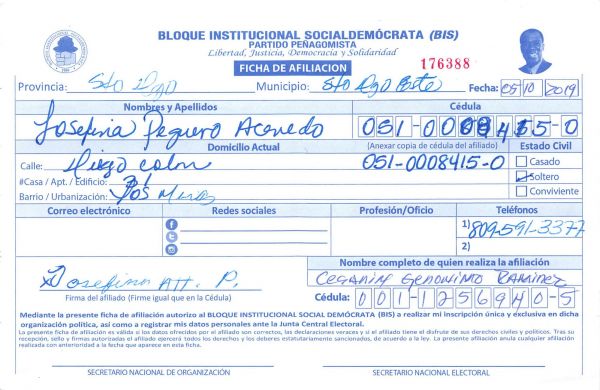 BLOQUE INSTITUCIONAL SOCIALDEMÓCRATA (BIS)
PARTIDO PEÑAGOMISTA
Libertad, Justicia, Democracia y Solidaridad
FICHA DE AFILIACION
176388
Provincia: Sto Dgo Municipio: Sto Dgo Este Fecha: 05/10/2019
Nombres y Apellidos Cédula
Josefinia Peguero Acevedo 051-0008415-0
Domicilio Actual (Anexar copia de cédula del afiliado) Estado Civil
Calle: Diego colon 051-0008415-0 Casado
#Casa / Apt. / Edificio: 31 Soltero
Barrio / Urbanización: Los Minas Conviviente
Correo electrónico Redes sociales Profesión/Oficio Teléfonos
1) 809-591-3377
2)
Nombre completo de quien realiza la afiliación
Josefina Alt. P. Geronimo Ramirez
Firma del afiliado (Firme igual que en la Cédula) Cédula: 001-1256940-5
Mediante la presente ficha de afiliación autorizo al BLOQUE INSTITUCIONAL SOCIAL DEMÓCRATA (BIS) a realizar mi inscripción única y exclusiva en dicha
organización política, así como a registrar mis datos personales ante la Junta Central Electoral.
La presente ficha de afiliación es válida si los datos ofrecidos por el afiliado son correctos, las declaraciones veraces y si el afiliado tiene el disfrute de sus derechos civiles y políticos. Tras su
recepción, sello y firmas autorizadas el afiliado ejercerá todos los derechos y los deberes estatutariamente sancionados, de acuerdo a la ley. La presente afiliación anula cualquier afiliación
realizada con anterioridad a la fecha que aparece en esta ficha.
SECRETARIO NACIONAL DE ORGANIZACIÓN SECRETARIO NACIONAL ELECTORAL